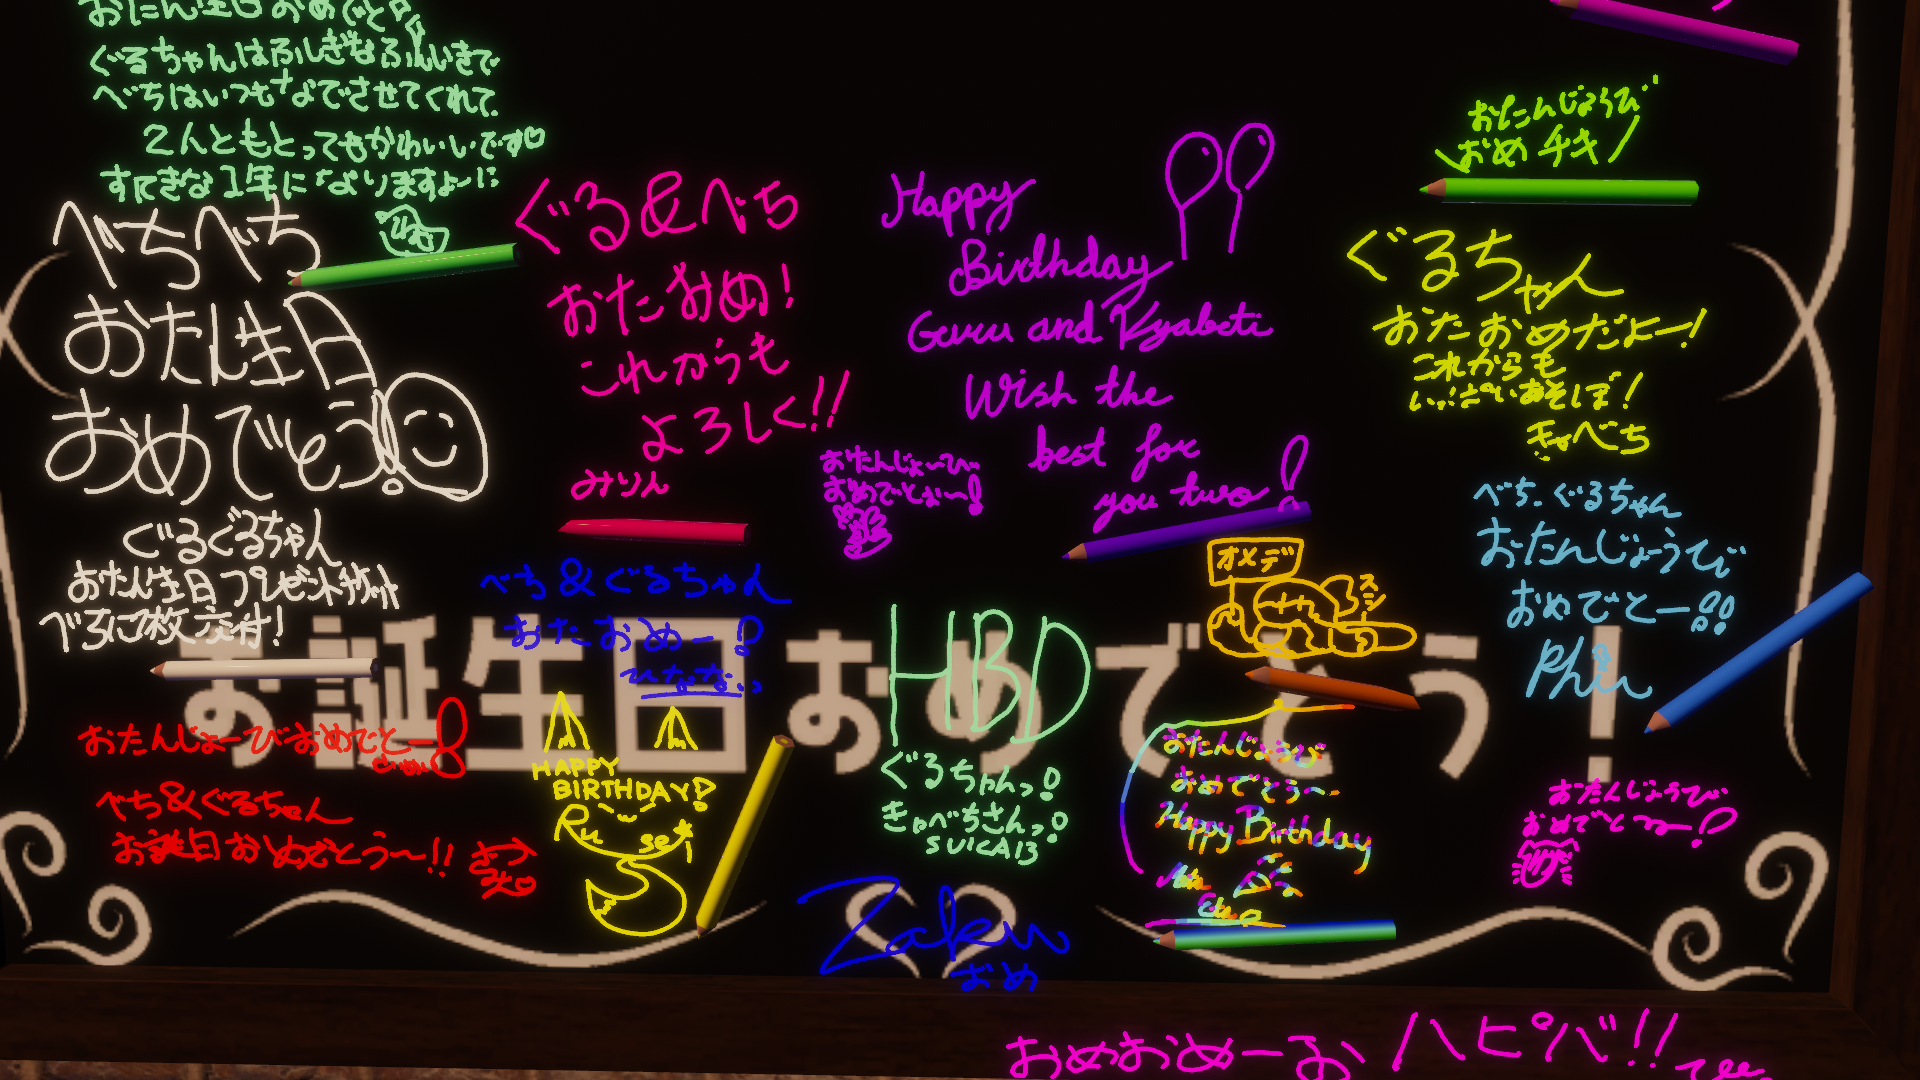 おたん生日おめでと
ぐるちゃんはふしぎなふんいきで
べちはいつも
なでさせてくれて
2人ともとってもかわいいです♡
すてきな1年になりますよーに
べちべち
おたん生日
おめでとう!
ぐるぐるちゃん
おたん生日プレゼント
ぐる&べち
おたおめ!
これからも
よろしく!!
みりん
Happy
Birthday
Guru and Kyabeti
Wish the
best for
you two!
おたんじょーび
おめでとぉ〜!
おたんじょうび
おめチキ!
ぐるちゃん
おたおめだよー!
これからも
いっぱいあそぼ!
きゃべち
べち、ぐるちゃん
おたんじょうび
おめでとー!!
Phu
オメデ
べち&ぐるちゃん
おたおめー!
お誕生日おめでとう!
おたんじょーびおめでとー!
べち&ぐるちゃん
お誕生日おめでとう〜!!
HAPPY
BIRTHDAY!
HBD
ぐるちゃんっ!
きゃべちさんっ!
SUICA13
おたんじょうび
おめでとう〜
Happy Birthday
おたんじょうび
おめでとうー!
Zaku
おめ
おめおめーお
ハピバ!!